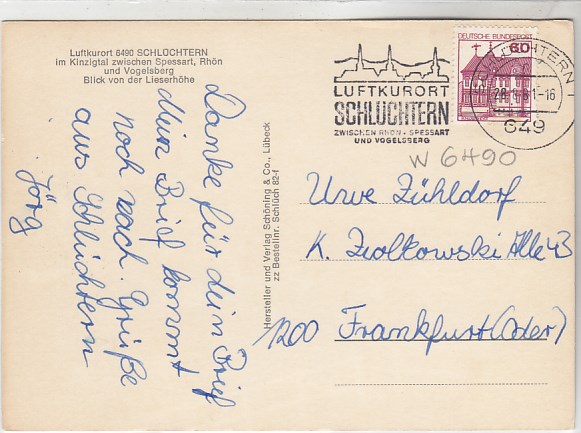 Luftkurort 6490 SCHLÜCHTERN
im Kinzigtal zwischen Spessart, Rhön
und Vogelsberg
Blick von der Lieserhöhe
Danke für dein Brief
Mein Brief kommt
noch nach. Grüße
aus Schlüchtern
Jörg
Hersteller und Verlag Schöning & Co., Lübeck
zz Bestellnr. Schlüch 82-f
LUFTKURORT
SCHLÜCHTERN
ZWISCHEN RHÖN · SPESSART
UND VOGELSBERG
DEUTSCHE BUNDESPOST
60
SCHLÜCHTERN 1
-16
649
W 6490
Uwe Zühldorf
K. Ziolkowski Alle 43
1200 Frankfurt (Oder)